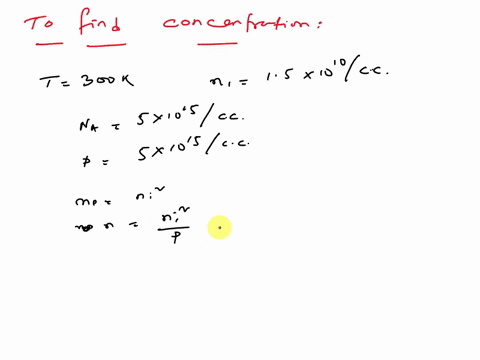 To find concentration:
T = 300K n₁ = 1.5 × 10¹⁰ / c.c.
N_A = 5 × 10¹⁵ / cc.
p = 5 × 10¹⁵ / c.c.
np = nᵢ²
n = nᵢ² / p